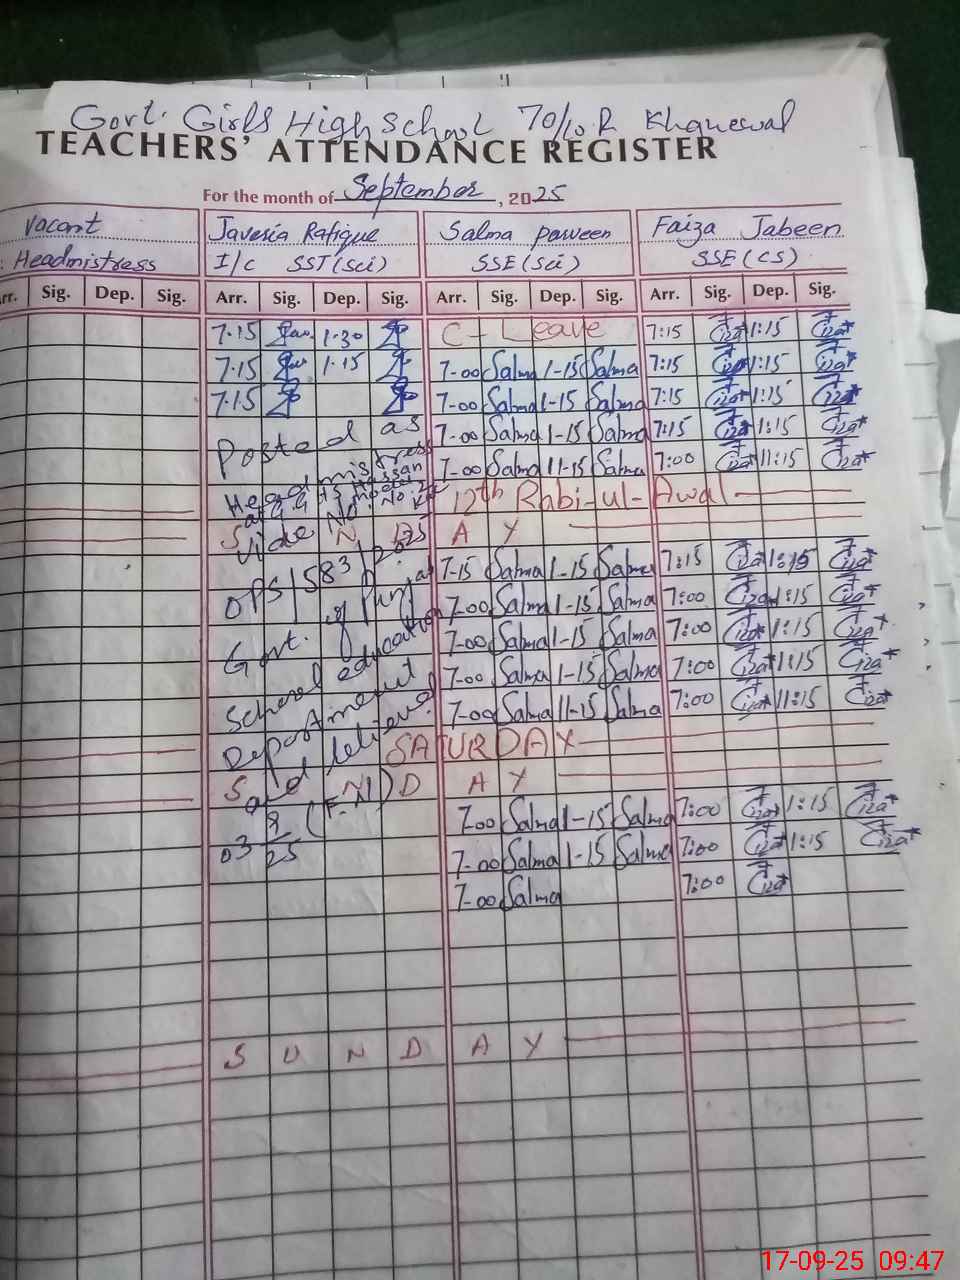 Govt. Girls High School 70/10.R Khanewal
TEACHERS' ATTENDANCE REGISTER
For the month of September, 2025
Vacant Javeria Rafique Salma Parveen Faiza Jabeen
: Headmistress I/C SST(Sci) SSE(Sci) SSE(CS)
Arr. Sig. Dep. Sig. Arr. Sig. Dep. Sig. Arr. Sig. Dep. Sig. Arr. Sig. Dep. Sig.
7.15 1.30 C-Leave 7:15 1:15
7.15 1.15 7-00 Salma 1-15 Salma 7:15 1:15
7.15 7-00 Salma 1-15 Salma 7:15 1:15
Posted as 7-00 Salma 1-15 Salma 7:15 1:15
Headmistress 7-00 Salma 1-15 Salma 7:00 1:15
at Hassan 12th Rabi-ul-Awal
S U N D A Y
Vide No. No
OPS/583/2025 7-15 Salma 1-15 Salma 7:15 1:15
Govt. of Punjab 7-00 Salma 1-15 Salma 7:00 1:15
School education 7-00 Salma 1-15 Salma 7:00 1:15
Department 7-00 Salma 1-15 Salma 7:00 1:15
and relieved 7-00 Salma 1-15 Salma 7:00 1:15
SATURDAY
S U N D A Y
(F.N)
03 9/25 7-00 Salma 1-15 Salma 7:00 1:15
7-00 Salma 1-15 Salma 7:00 1:15
7-00 Salma 7:00
S U N D A Y
17-09-25 09:47